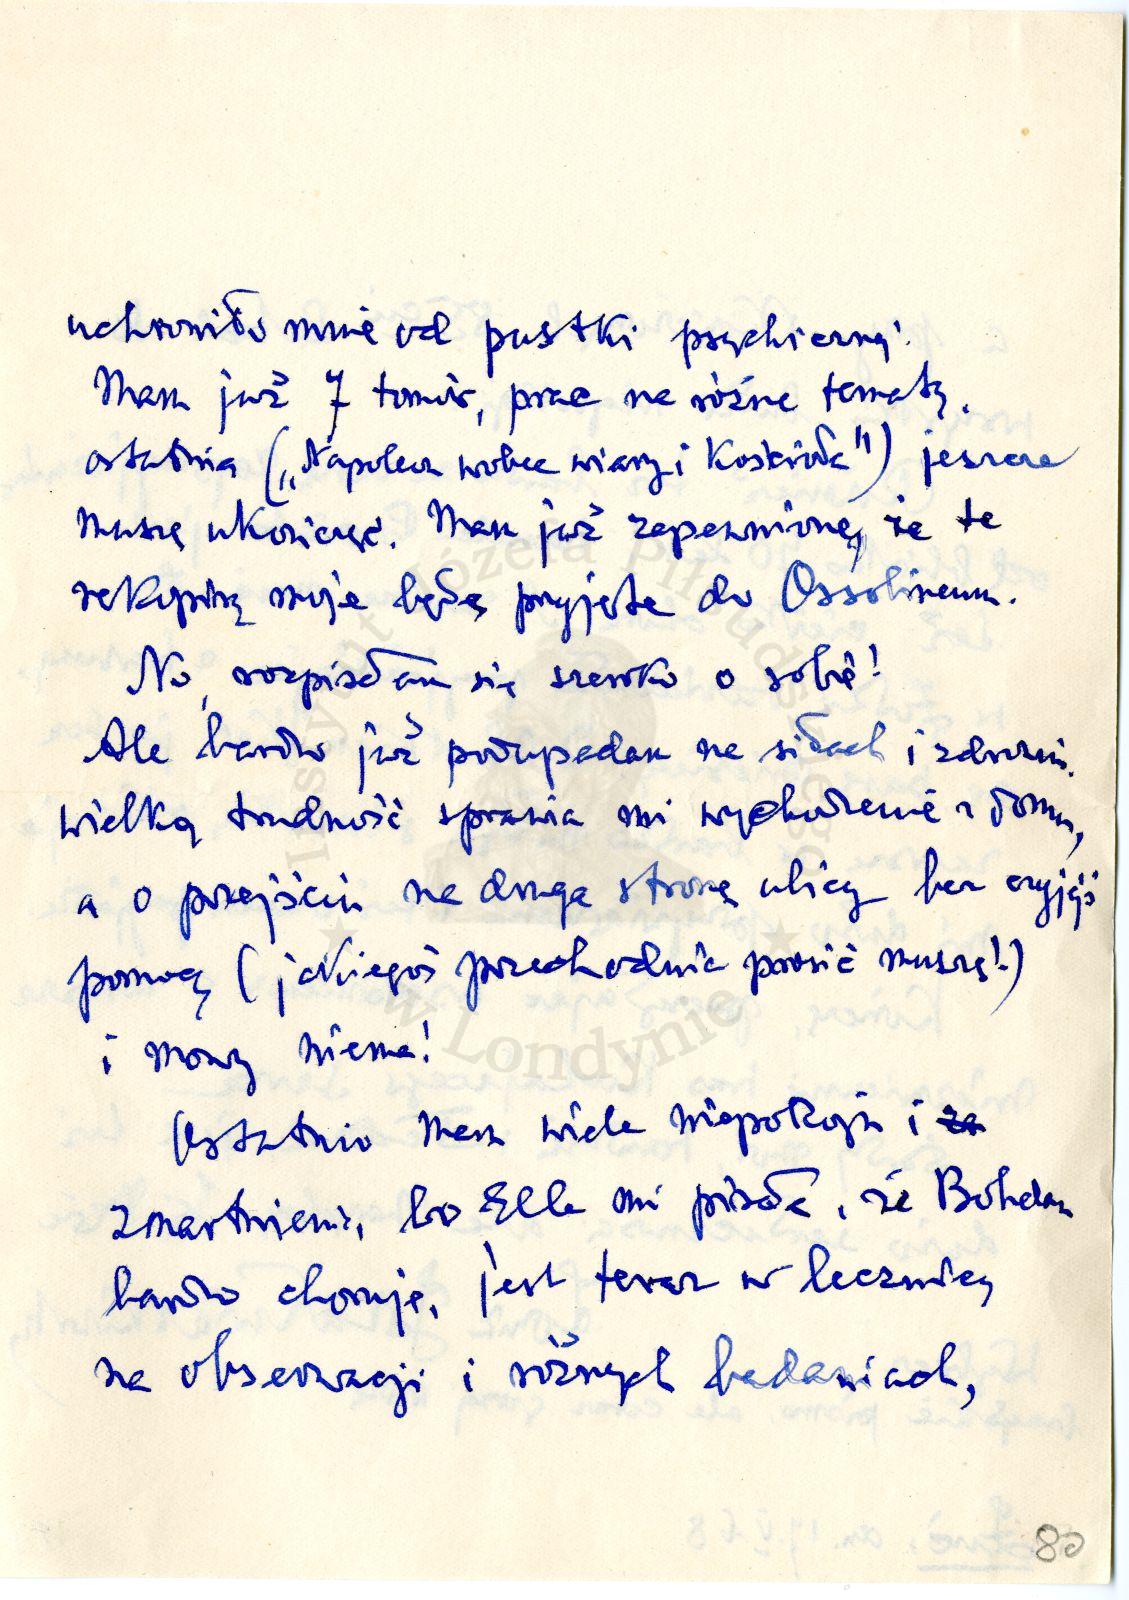 uchroniło mnie od pustki psychicznej!
Mam już 7 tomów, prac na różne tematy,
ostatnia („Napoleon wobec wiary i Kościoła") jeszcze
muszę ukończyć. Mam już zapewnione, że te
rękopisy moje będą przyjęte do Ossolineum.
No, rozpisałam się szeroko o sobie!
Ale bardzo już podupadam na siłach i zdrowiu.
wielką trudność sprawia mi wychodzenie z domu,
a o przejściu na drugą stronę ulicy bez czyjejś
pomocy (jakiegoś przechodnia prosić muszę!)
i mowy niema!
Ostatnio mam wiele niepokoju i za
zmartwienia, bo Ella mi pisała, że Bohdan
bardzo choruje, jest teraz w lecznicy
na obserwacji i różnych badaniach,
80
Instytut Józefa Piłsudskiego
w Londynie